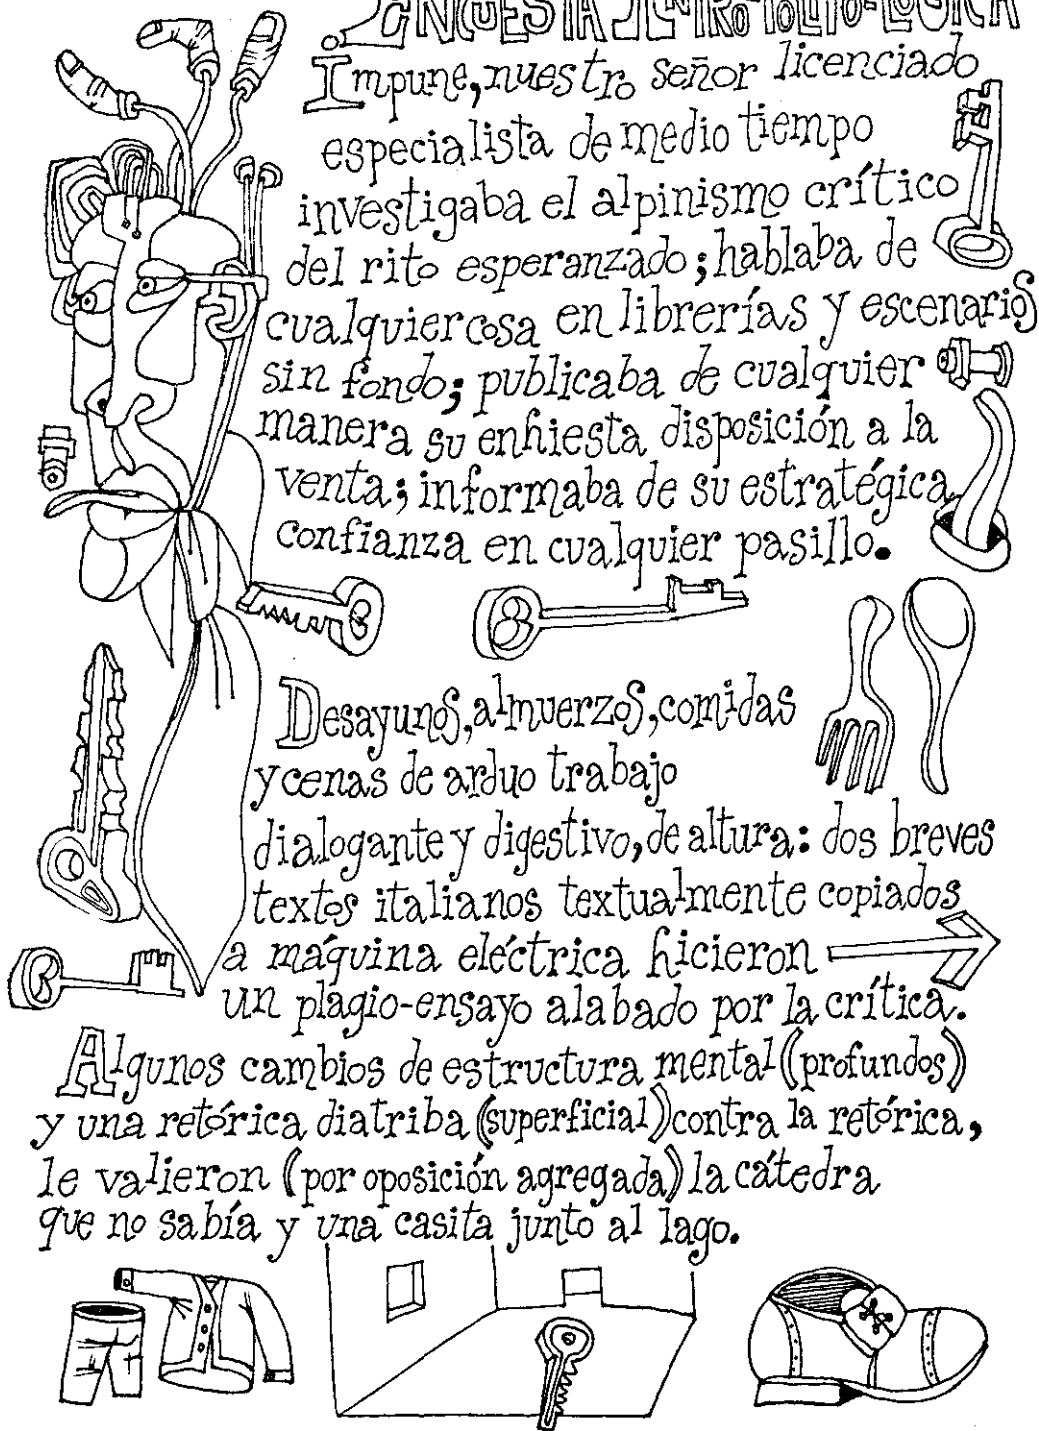 ENCUESTA
Impune, nuestro señor licenciado
especialista de medio tiempo
investigaba el alpinismo crítico
del rito esperanzado; hablaba de
cualquier cosa en librerías y escenarios
sin fondo; publicaba de cualquier
manera su enhiesta disposición a la
venta; informaba de su estratégica
confianza en cualquier pasillo.
Desayunos, almuerzos, comidas
y cenas de arduo trabajo
dialogante y digestivo, de altura: dos breves
textos italianos textualmente copiados
a máquina eléctrica hicieron
un plagio-ensayo alabado por la crítica.
Algunos cambios de estructura mental (profundos)
y una retórica diatriba (superficial) contra la retórica,
le valieron (por oposición agregada) la cátedra
que no sabía y una casita junto al lago.